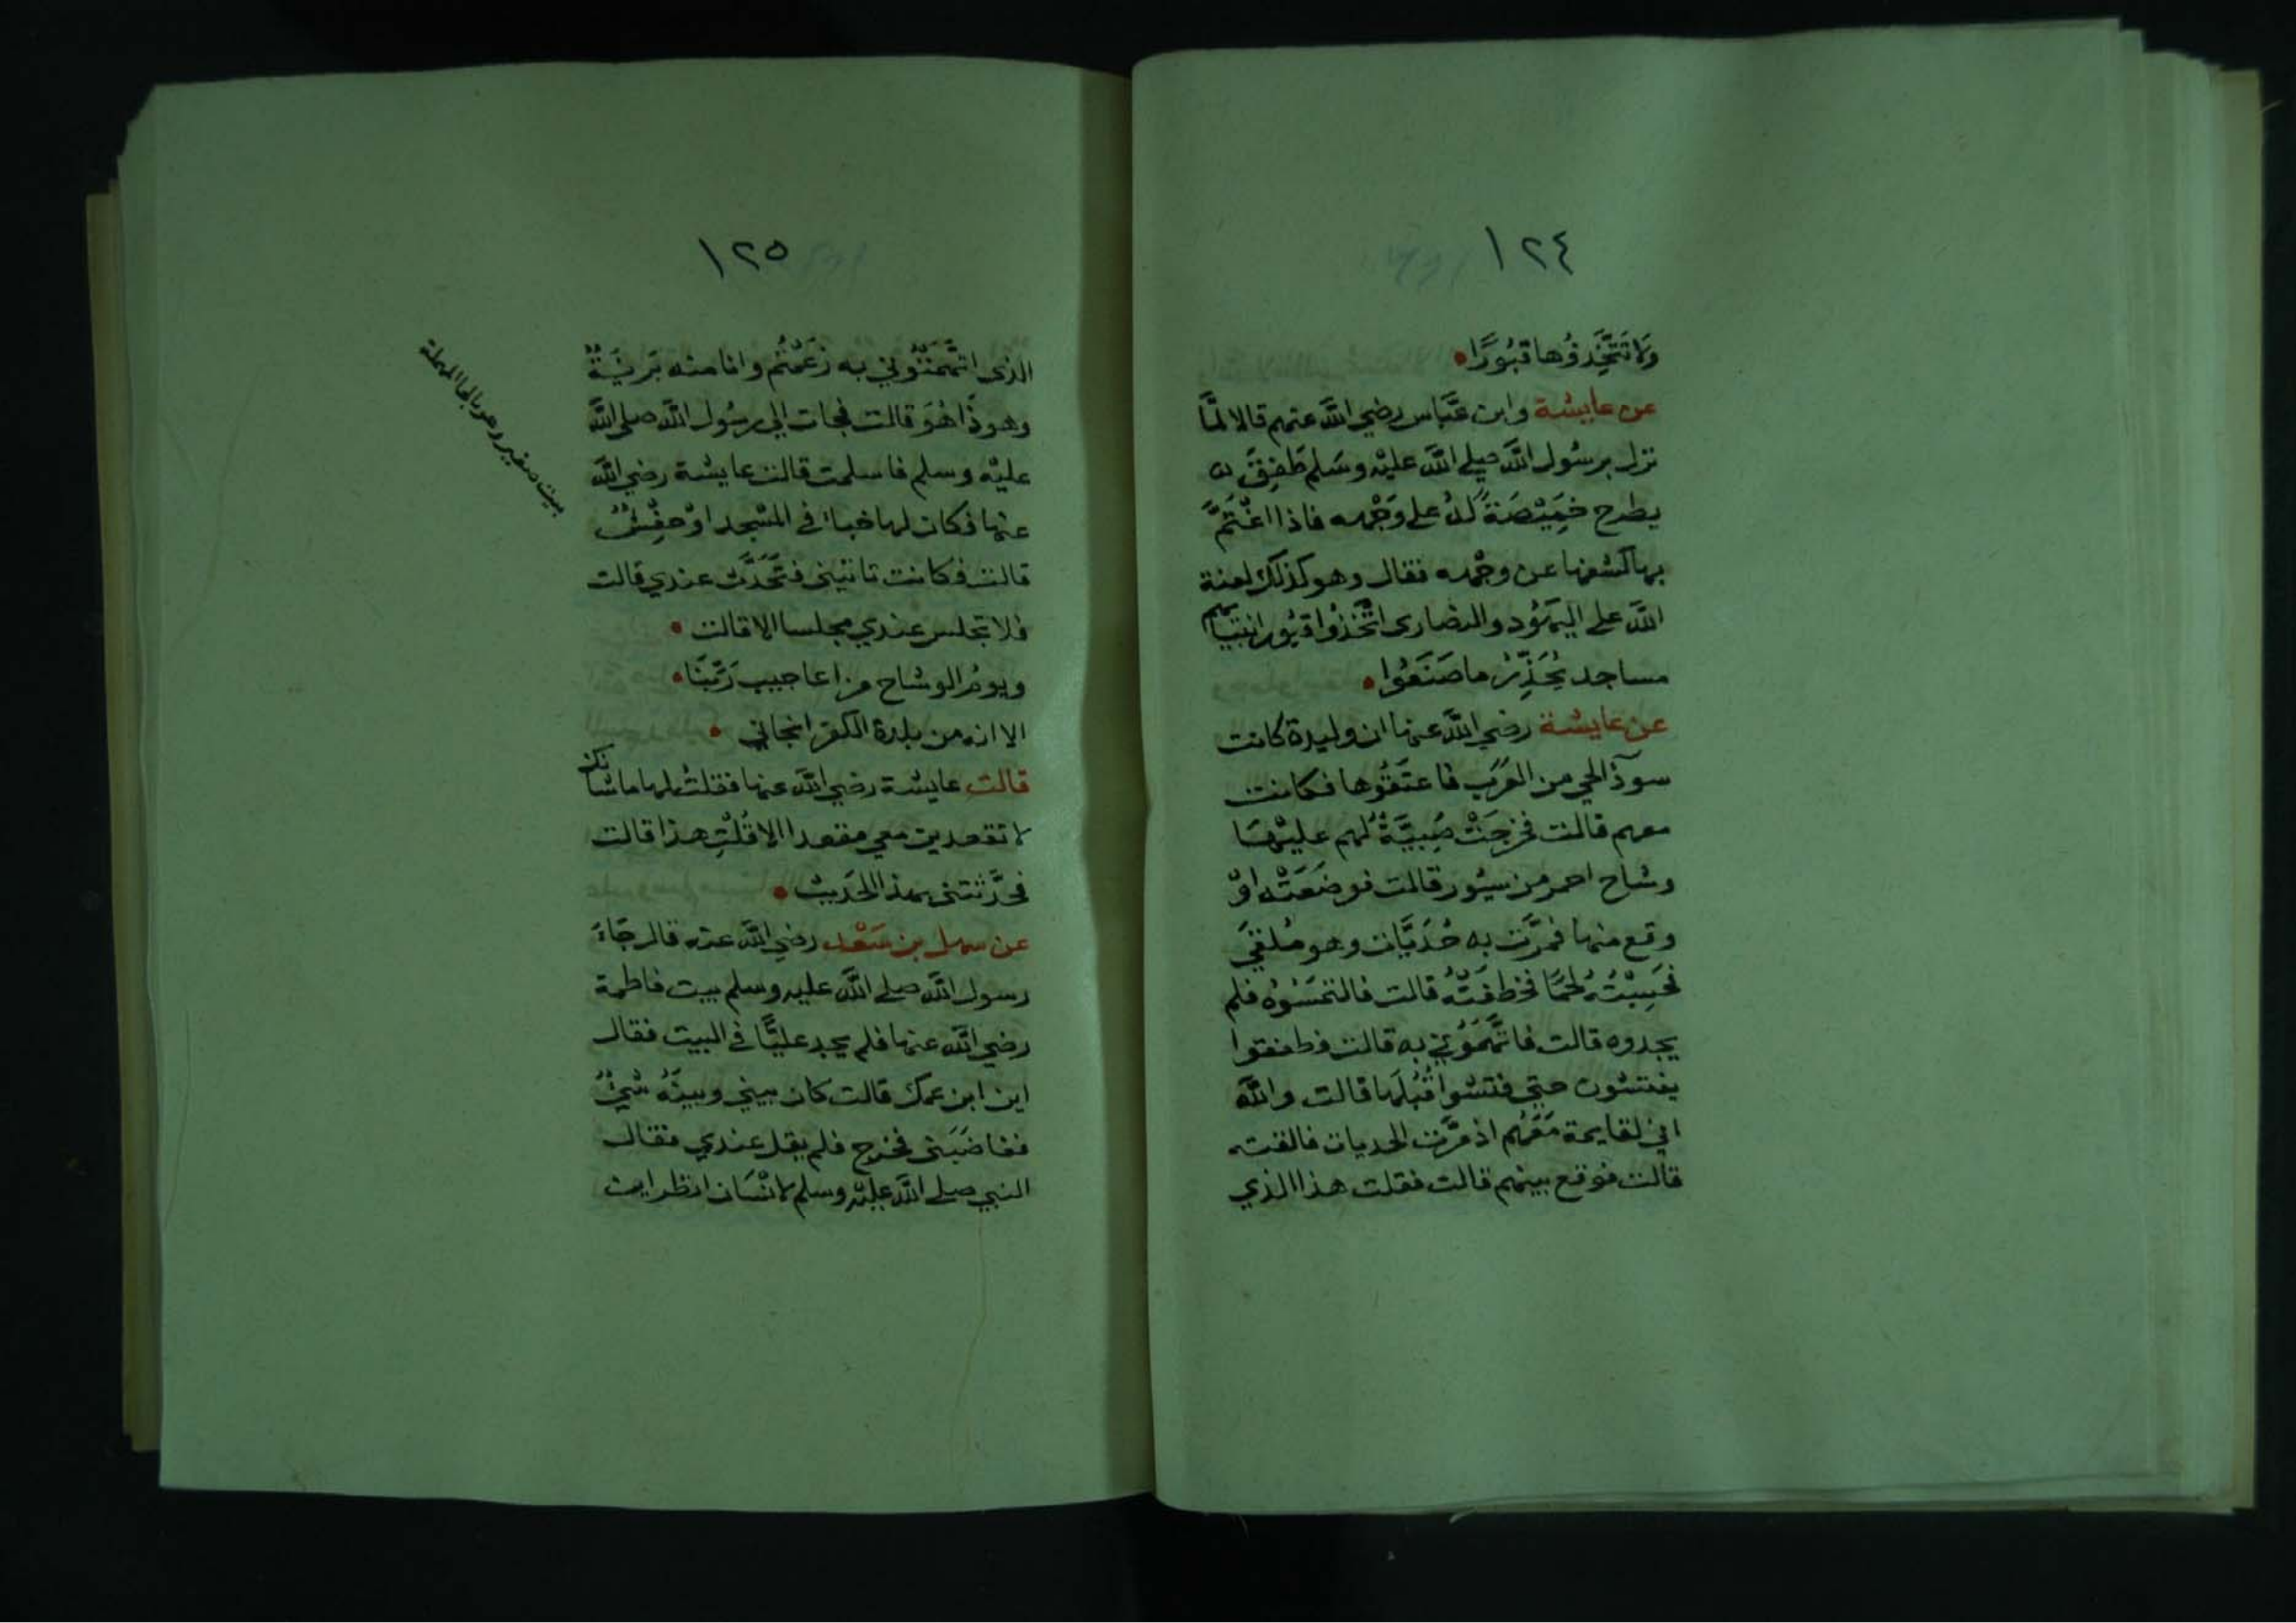 ١٢٤
وَلَا تَتَّخِذُوُها قُبُورًا
عن عايشة وابن عَبَّاس رضي اللَّه عنهم قالا لمَّا
نزل برسُول اللَّه صلى اللَّه عليْه وسَلم طَفِقَ
يطرح خَمِيْصَةً لهُ على وَجْهه فاذا اغْتَمَّ
بها كشفها عن وجْهه فقال وهو كذلك لعنة
اللَّه على اليهُود والنصارى اتَّخذُوا قبُور انبيَائهم
مساجد يُحَذِّرُ ما صَنَعُوا
عن عايشة رضي اللَّه عنها ان وليدة كانت
سودآ لحي من العَرَب فاعتَقُوها فكانت
معهم قالت فخرجَتْ صَبِيَّةٌ لهم عليْهَا
وشاح احمر من سيُور قالت فوضعَتْه اوْ
وقع منها فمرَّت به حُدَيَّات وهو مُلقيَ
فحَسِبَتْهُ لحْمًا فخطفَتْه قالت فالتمسُوْه فلم
يجدوه قالت فاتَّهَمُوْني به قالت فطفقوا
يفتشون حتى فتشوا قُبُلَها قالت واللَّه
اني لقايمة مَعَهُم اذ مرَّت الحديات فالقته
قالت فوقع بينهم قالت فقلت هذا الذي
١٢٥
الذى اتَّهَمْتُوني به زعَمْتُم وانا منه بَريَةٌ
وهو ذَا هُوَ قالت فجات الى رسُول اللَّه صلى اللَّه
عليْه وسلم فاسلمت قالت عايشة رضي اللَّه
عنها فكان لها خباا في المسْجد اوْ حِفْشٌ
قالت فكانت تاتيني فتَحَدَّث عندي قالت
فلا تجلس عندي مجلسا الا قالت
ويومُ الوشاح من اعاجيب رَبّنَا
الا انه من بلدة الكفر انجاني
قالت عايشة رضي اللَّه عنها فقلتُ لها ما شانك
لا تقعدين معي مقعدا الا قُلْتِ هذا قالت
فحدَّثتني بهذا الحَديث
عن سهل بن سَعْد رضي اللَّه عنه قال جَاءَ
رسول اللَّه صلى اللَّه عليه وسلم بيت فاطمة
رضي اللَّه عنها فلم يجد عليًّا في البيت فقال
اين ابن عمك قالت كان بيني وبينَهُ شيْءٌ
فغاضَبَني فخرج فلم يقل عندي فقال
النبي صلى اللَّه عليْه وسلم لانْسَان انظر اين
بيت صغير وهو بالحا المهملة